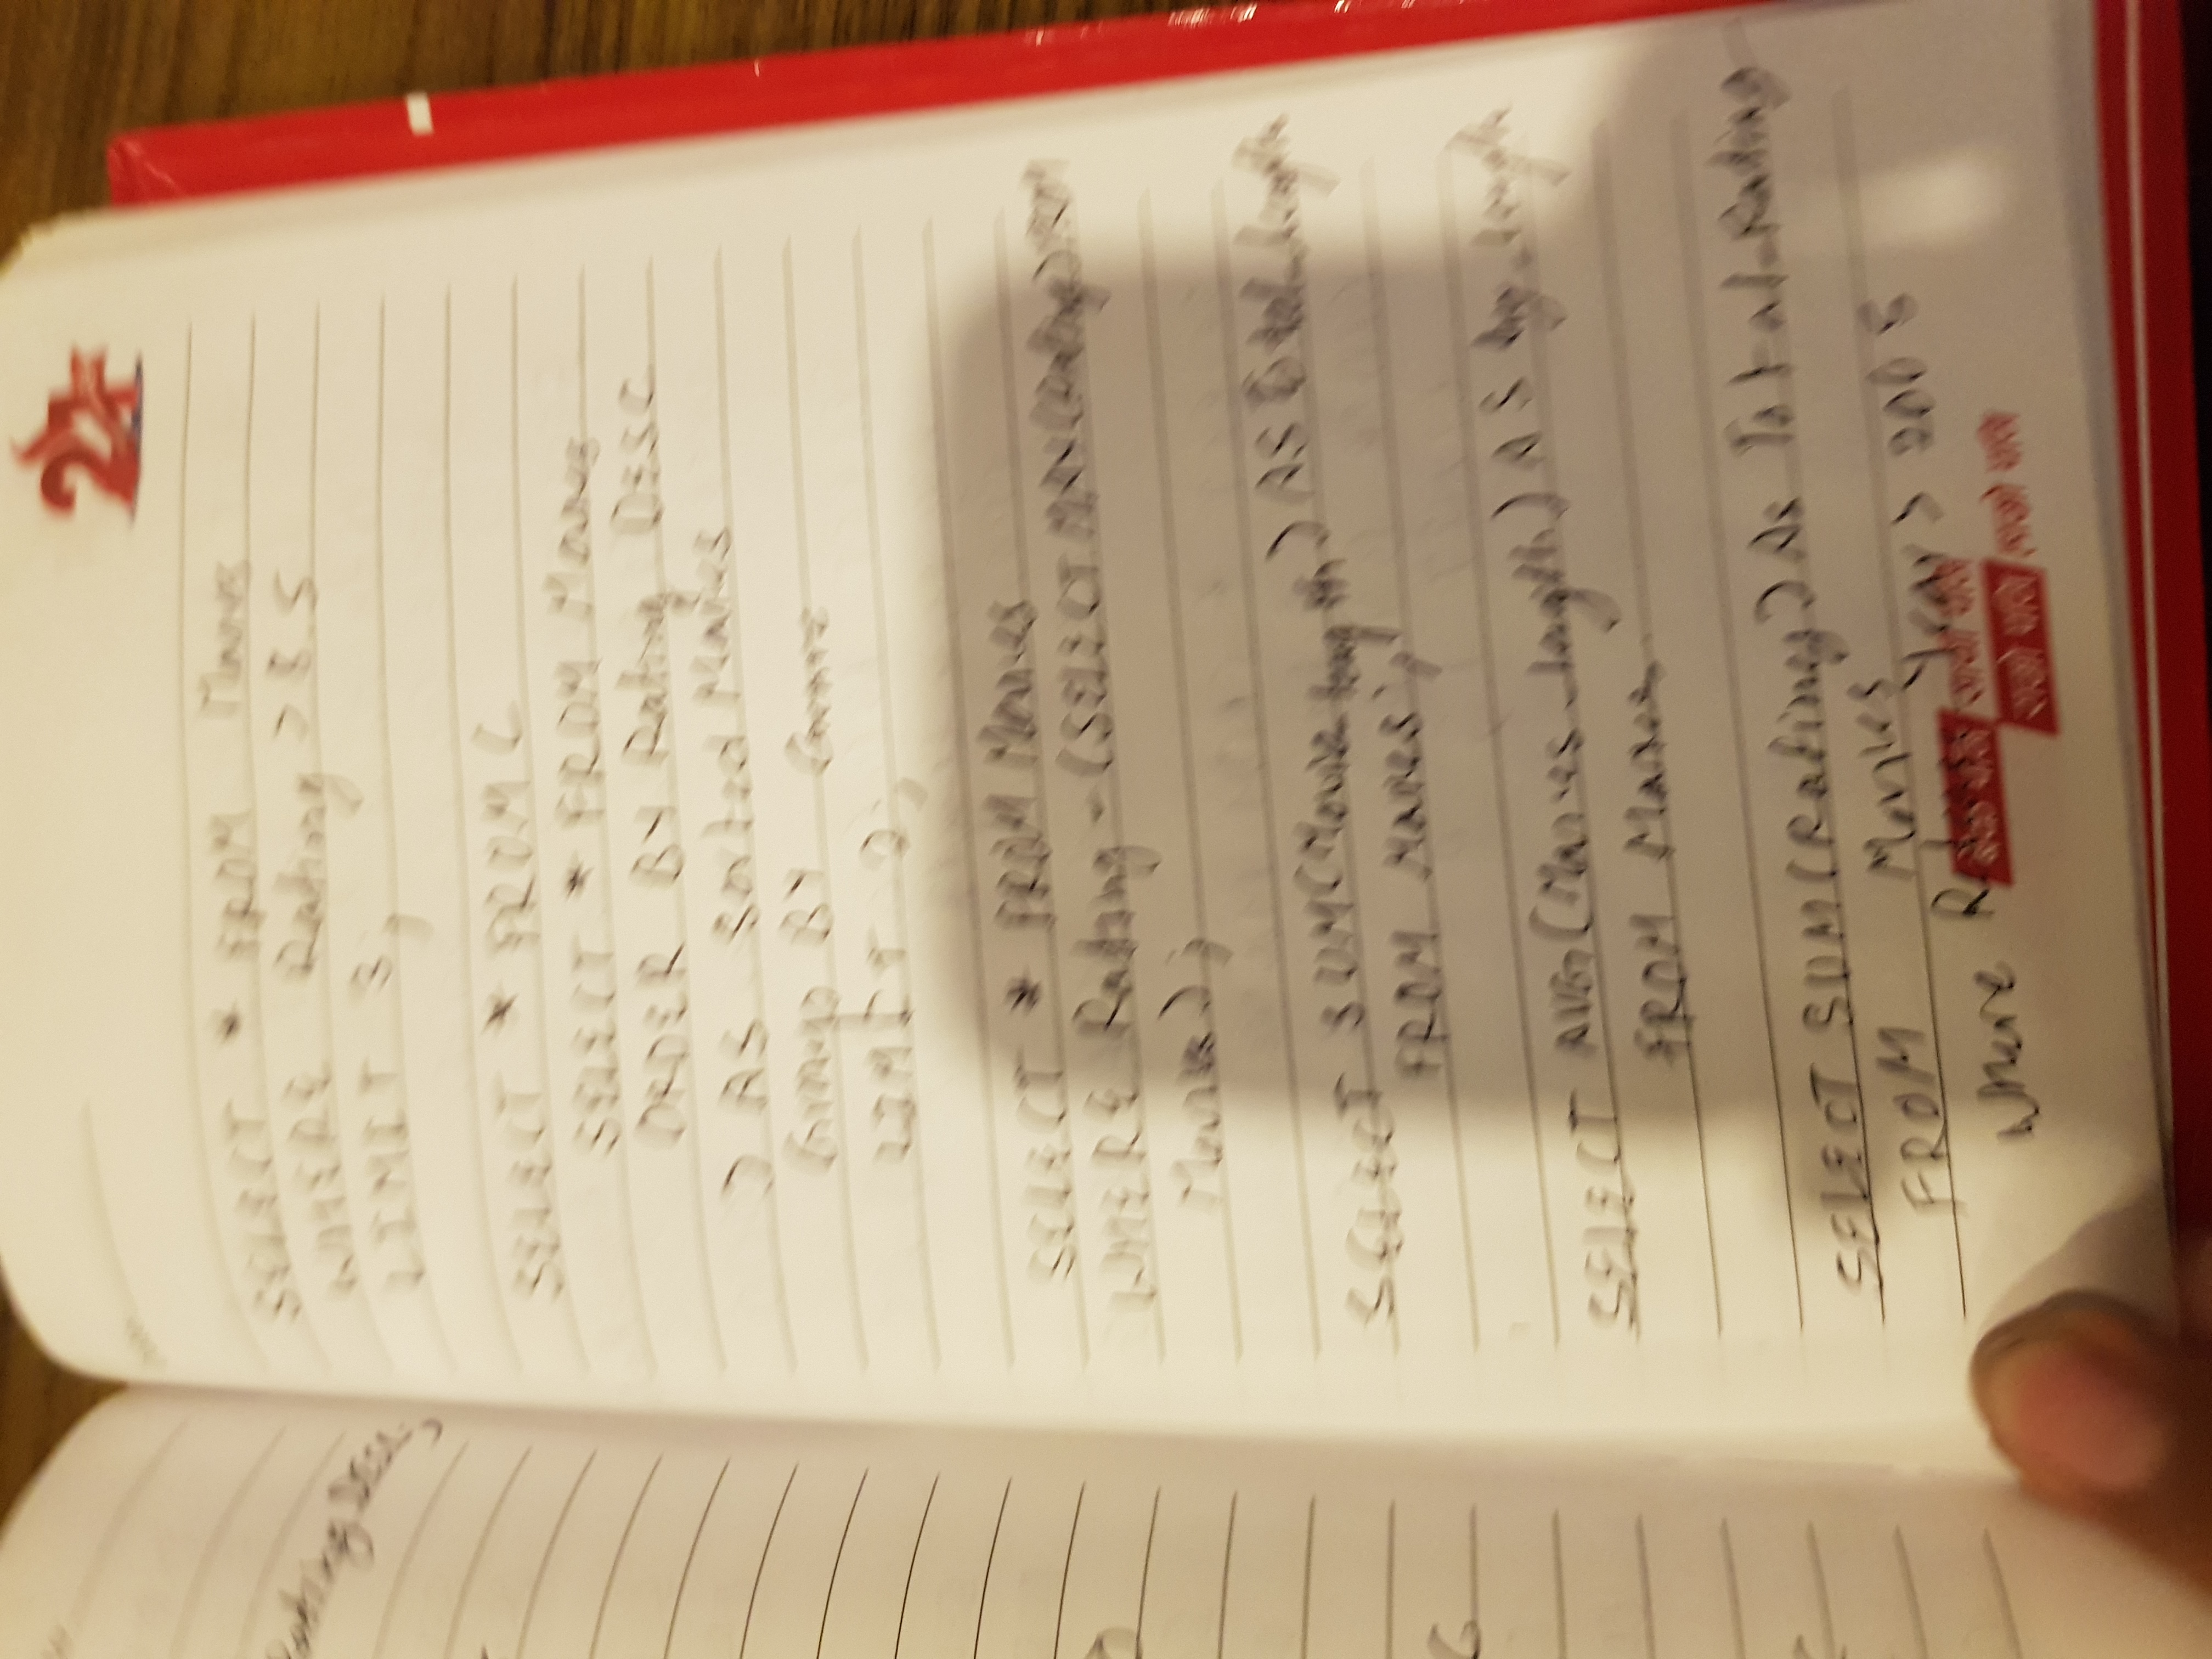 Rating DESC;
24
SELECT * FROM Movies
WHERE Rating > 8.5
LIMIT 3;
SELECT * FROM (
SELECT * FROM Movies
ORDER BY Rating DESC
) AS Sorted Movies
Group BY Genre
LIMIT 2;
SELECT * FROM Movies
WHERE Rating = (SELECT MAX(Rating) FROM
Movies);
SELECT SUM(Movie length) AS Total_length
FROM Movies;
SELECT AVG(Movies_length) AS Avg_length
FROM Movies
SELECT SUM(Rating) As Total_Rating
FROM Movies
Where Release Year > 2005